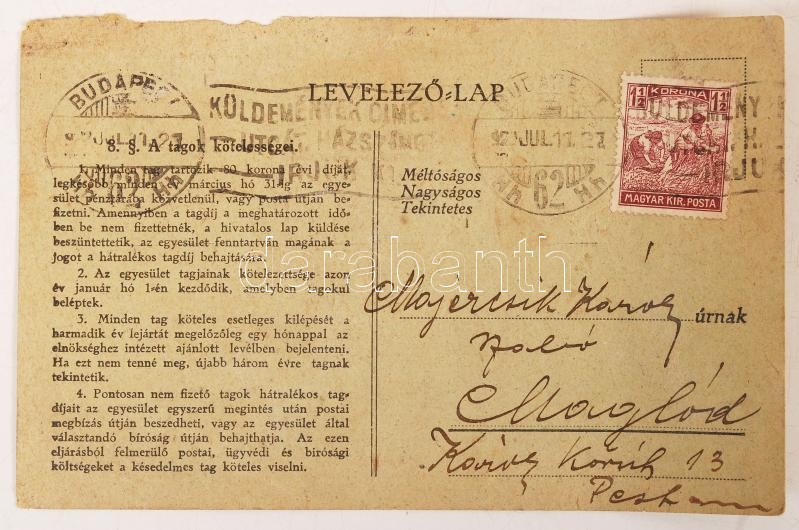 LEVELEZŐ-LAP
BUDAPEST
KÜLDEMÉNYEK CÍMÉT
UTCA, HÁZSZÁM
ÍRJUK KI
JUL.11.
62
KORONA
1½ 1½
MAGYAR KIR. POSTA
8. §. A tagok kötelességei.
1. Minden tag tartozik 80 korona évi díját,
legkésőbb minden év március hó 31-ig az egye-
sület pénztárába közvetlenül, vagy posta útján be-
fizetni. Amennyiben a tagdíj a meghatározott idő-
ben be nem fizettetnék, a hivatalos lap küldése
beszüntettetik, az egyesület fenntartván magának a
jogot a hátralékos tagdíj behajtására.
2. Az egyesület tagjainak kötelezettsége azon
év január hó 1-én kezdődik, amelyben tagokul
beléptek.
3. Minden tag köteles esetleges kilépését a
harmadik év lejártát megelőzőleg egy hónappal az
elnökséghez intézett ajánlott levélben bejelenteni.
Ha ezt nem tenné meg, újabb három évre tagnak
tekintetik.
4. Pontosan nem fizető tagok hátralékos tag-
díjait az egyesület egyszerű megintés után postai
megbízás útján beszedheti, vagy az egyesület által
választandó bíróság útján behajthatja. Az ezen
eljárásból felmerülő postai, ügyvédi és bírósági
költségeket a késedelmes tag köteles viselni.
Méltóságos
Nagyságos
Tekintetes
Majercsik Károly
úrnak
Maglód
Károly Körút 13
darabanth